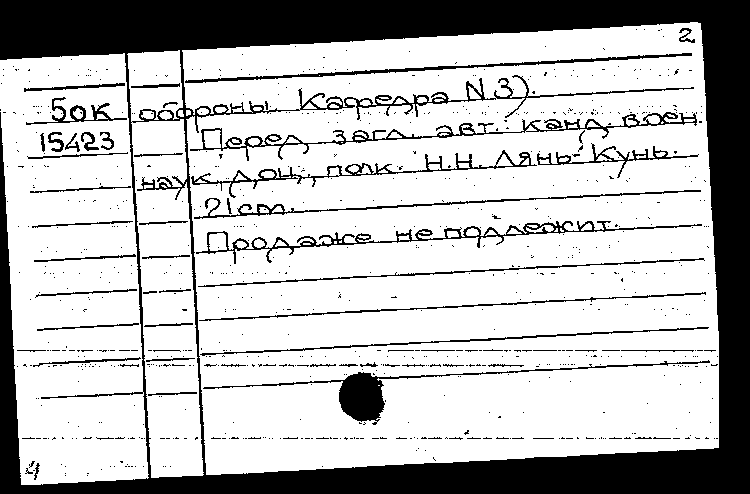 2
Бок обороны. Кафедра N.3).
15423 Перед загл. авт.: канд. воен.
наук, доц., полк. Н.Н. Лянь-Кунь.
21 cm.
Продаже не подлежит.
4